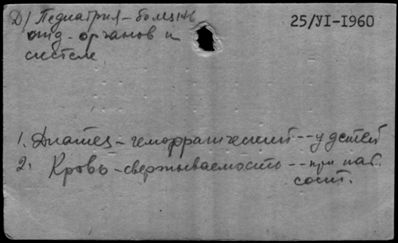 Д) Педиатрия - болезнь
25/VI-1960
отд. органов и
систем
1. Диатез - геморрагический -- у детей
2. Кровь - свертываемость -- при пат.
сост.